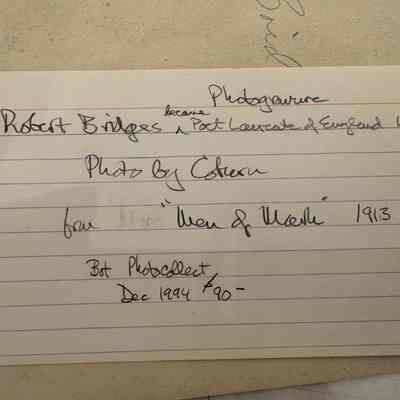 Brid
Photogravure
Robert Bridges became Poet Laureate of England
Photo by Coburn
from "Men of Mark" 1913
Bot Photocollect
Dec 1994 $90-